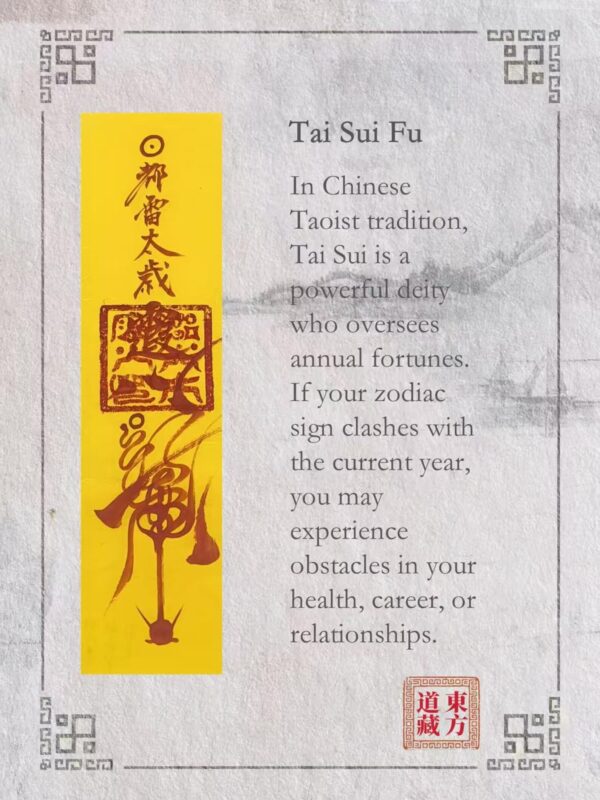 都雷太歲
Tai Sui Fu
In Chinese
Taoist tradition,
Tai Sui is a
powerful deity
who oversees
annual fortunes.
If your zodiac
sign clashes with
the current year,
you may
experience
obstacles in your
health, career, or
relationships.
東方
道藏